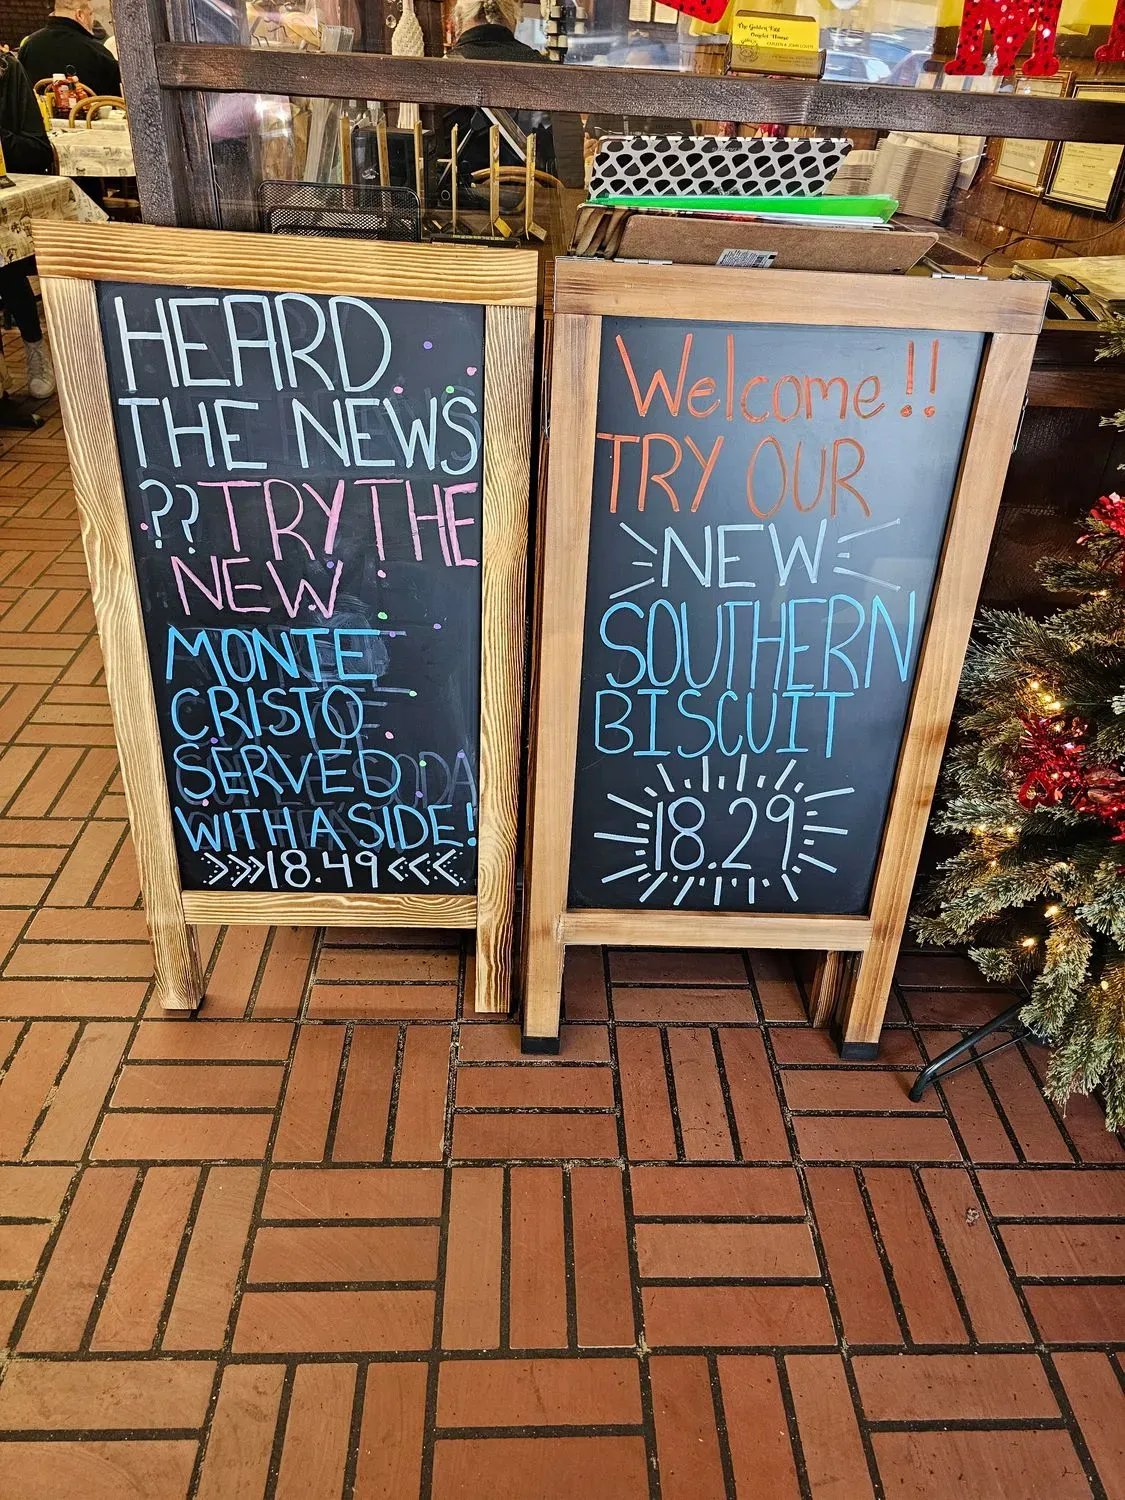 The Golden Egg
Omelet House
HEARD
THE NEWS
?? TRY THE
NEW
MONTE
CRISTO
SERVED
WITH A SIDE!
>>>18.49<<<
Welcome!!
TRY OUR
NEW
SOUTHERN
BISCUIT
18.29